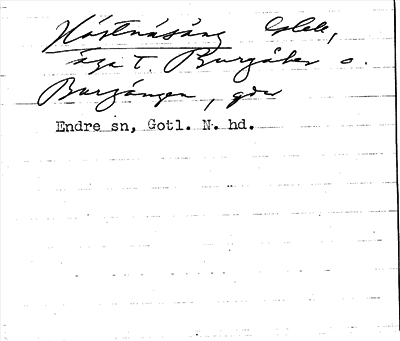 Hästnäsäng
äga t. Burgåker o.
Burgängen, gdr
Endre sn, Gotl. N. hd.